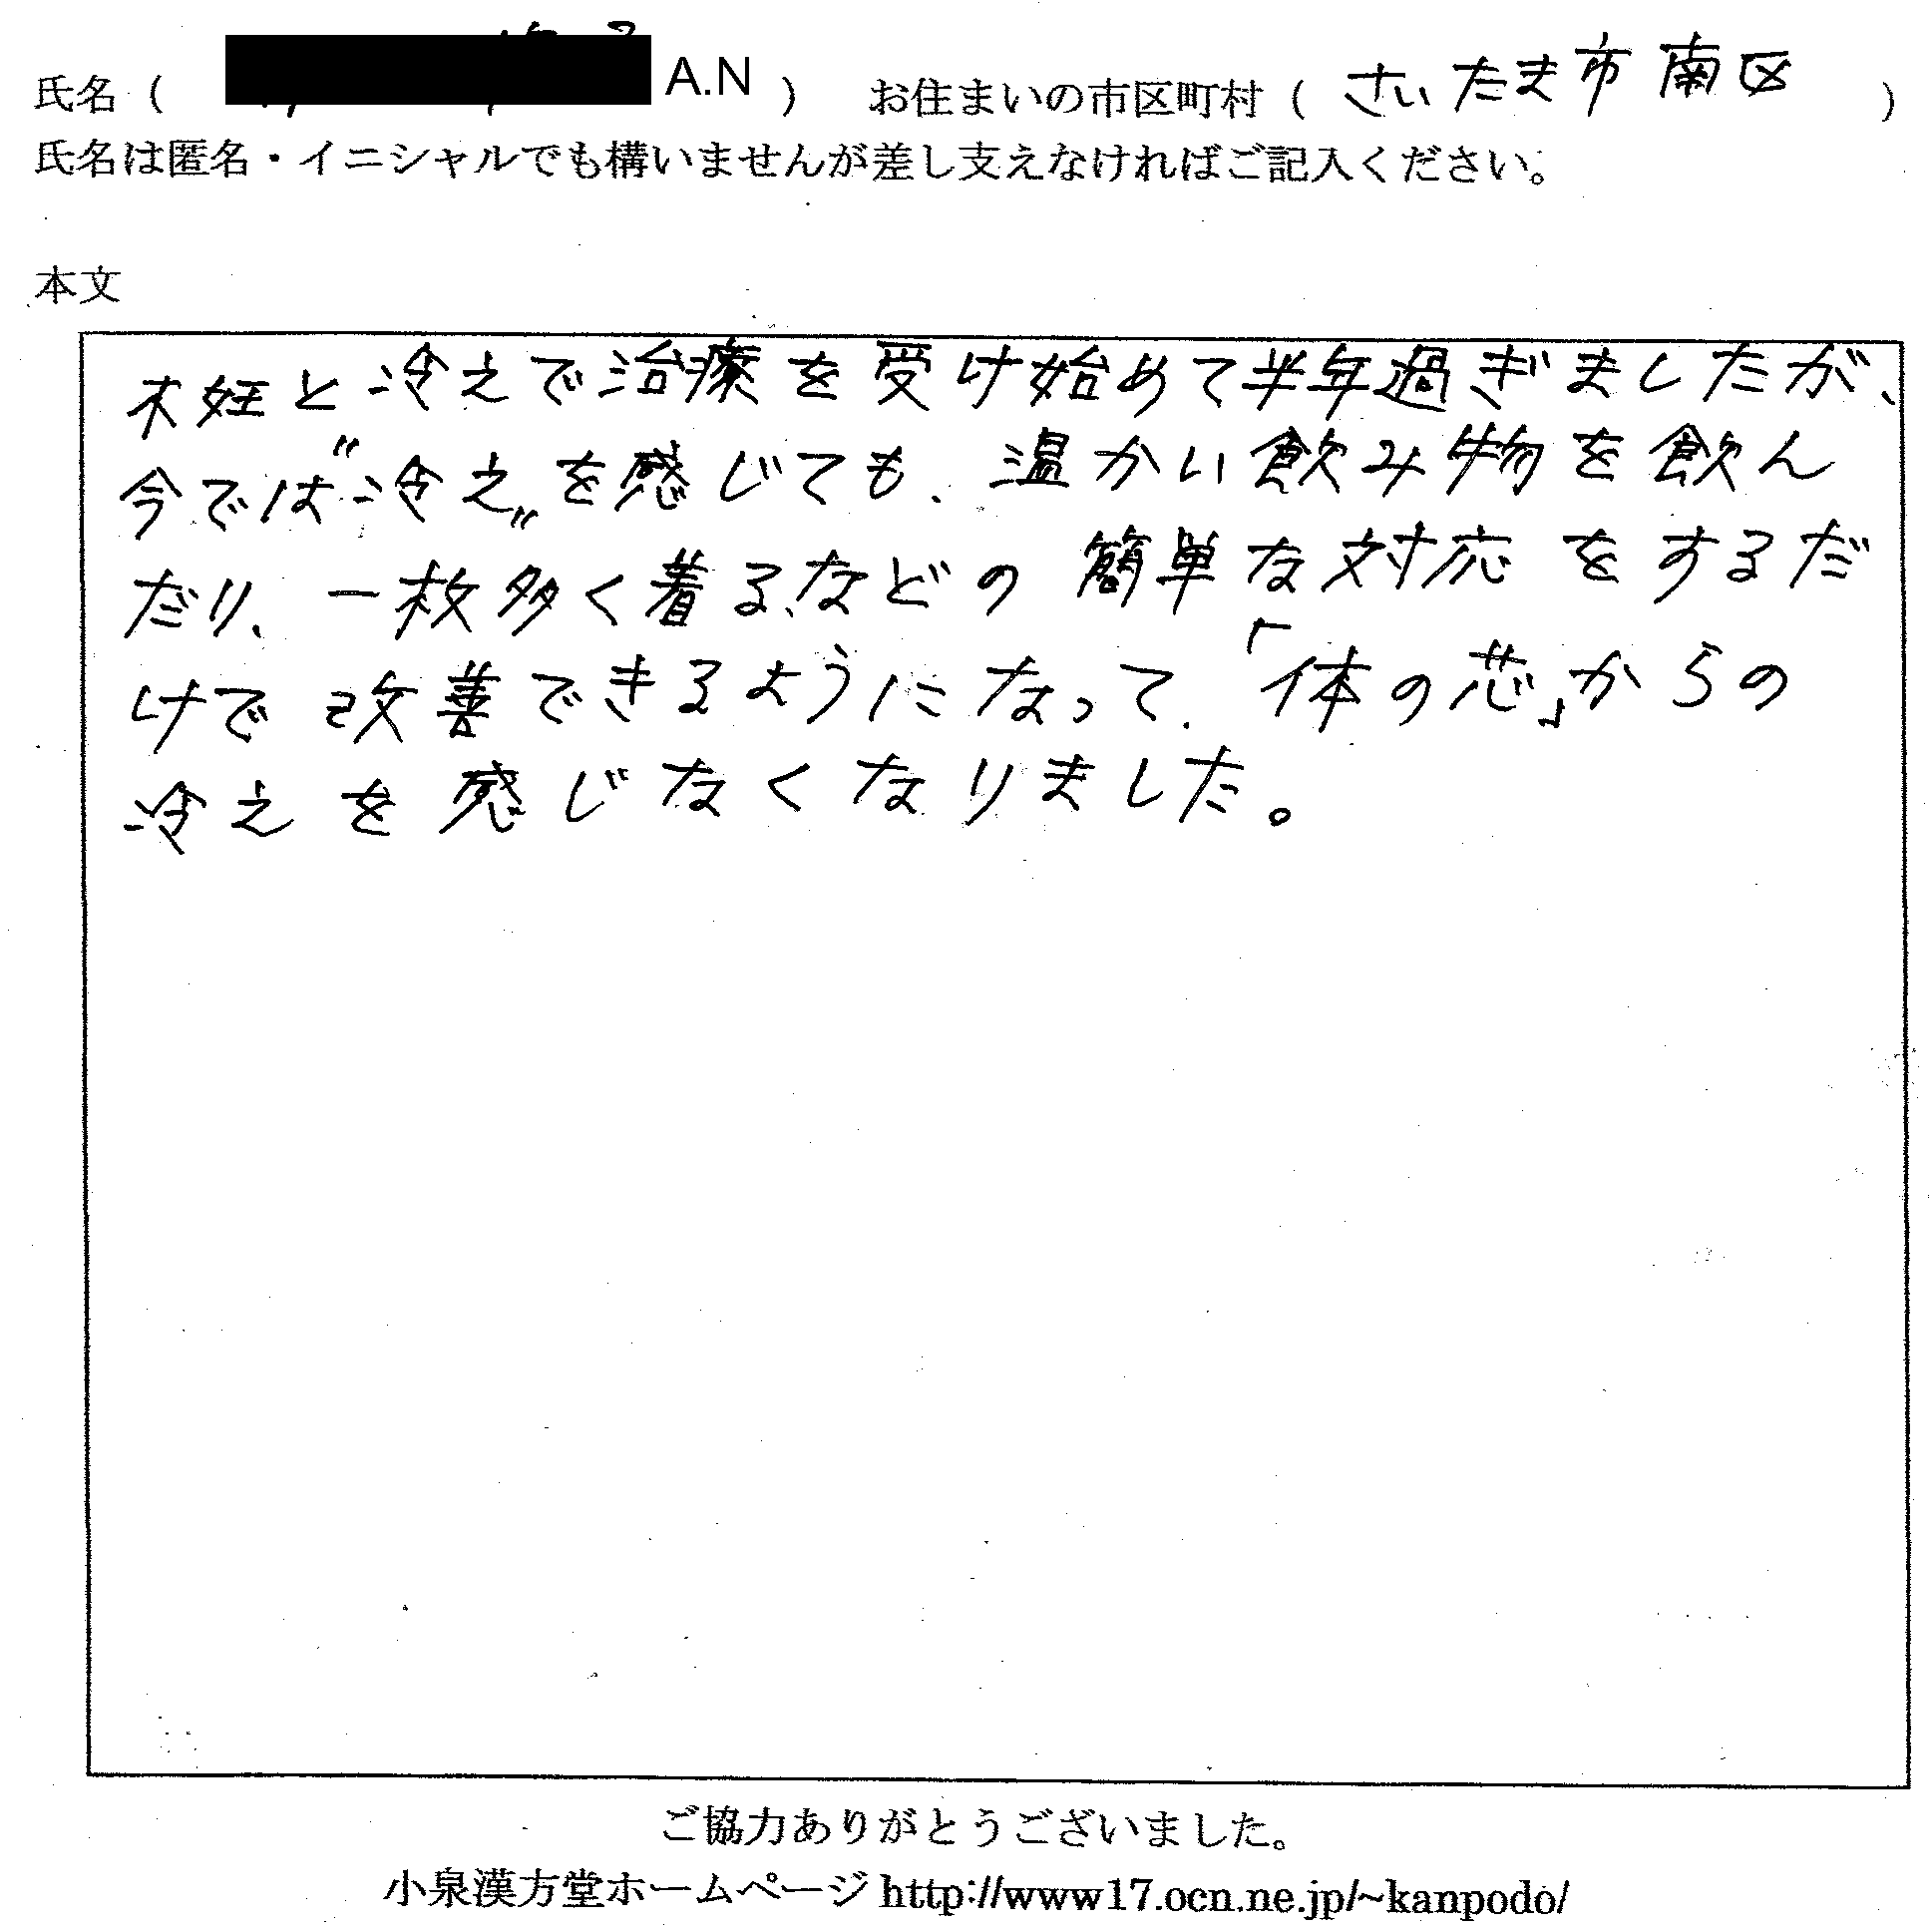 氏名（ A.N ） お住まいの市区町村（ さいたま市南区 ）
氏名は匿名・イニシャルでも構いませんが差し支えなければご記入ください。
本文
不妊と冷えで治療を受け始めて半年過ぎましたが、
今では〝冷え〟を感じても、温かい飲み物を飲ん
だり、一枚多く着る、などの簡単な対応をするだ
けで改善できるようになって、「体の芯」からの
冷えを感じなくなりました。
ご協力ありがとうございました。
小泉漢方堂ホームページ http://www17.ocn.ne.jp/~kanpodo/